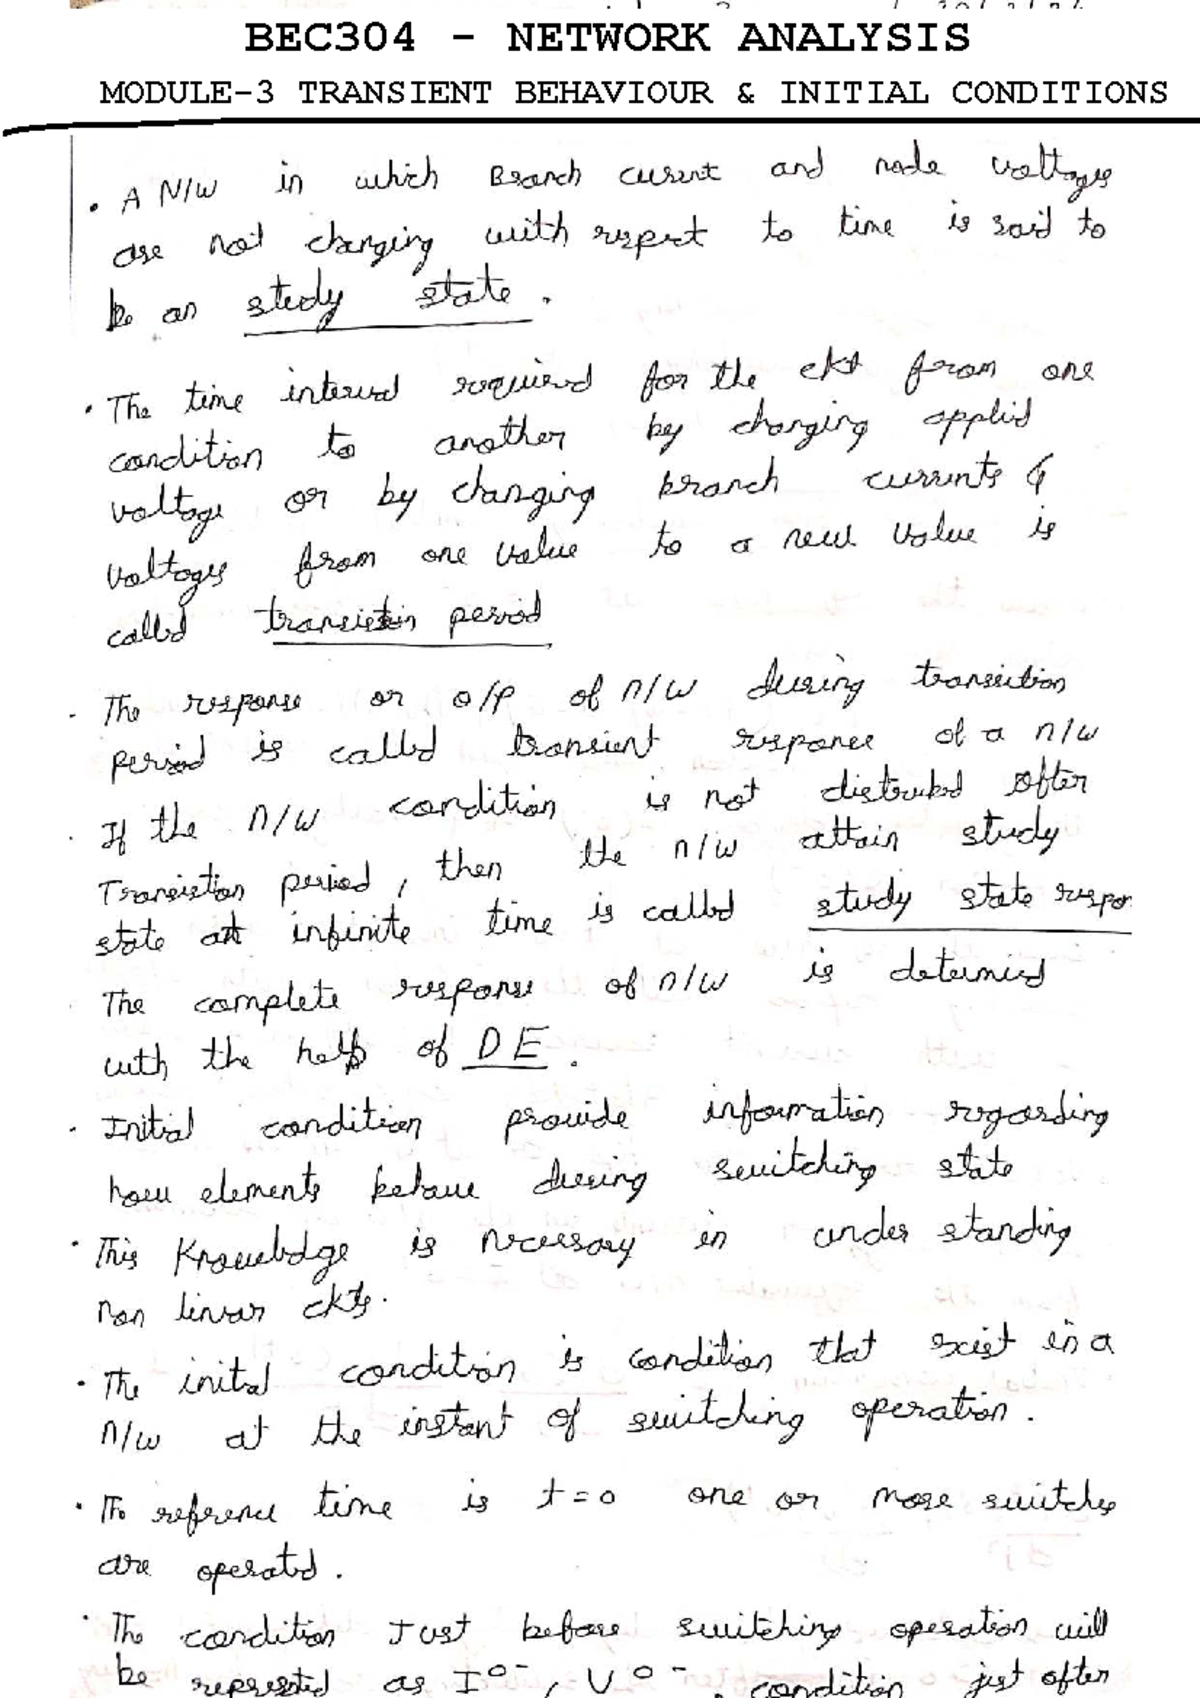 BEC304 - NETWORK ANALYSIS
MODULE-3 TRANSIENT BEHAVIOUR & INITIAL CONDITIONS
• A N/W in which Branch current and node voltages
are not changing with respect to time is said to
be an study state.
• The time interval required for the ckt from one
condition to another by changing applied
voltage or by changing branch currents &
voltages from one value to a new value is
called period
- The response or o/p of n/w during transcition
period is called transient responce of a n/w
. If the n/w condition is not distrubed after
Transistion period, then the n/w attain study
state at infinite time is called study state respon
The complete response of n/w is determied
with the help of DE.
- Initial condition provide information regarding
how elements behave during switching state
• This Knowledge is necessary in under standing
non linear ckts.
• The initial condition is condition that exist in a
n/w at the instant of switching operation.
• The reference time is t=0 one or more switches
are operated.
• The condition Just before switching operation will
be represented as I0-, V0-, condition just after